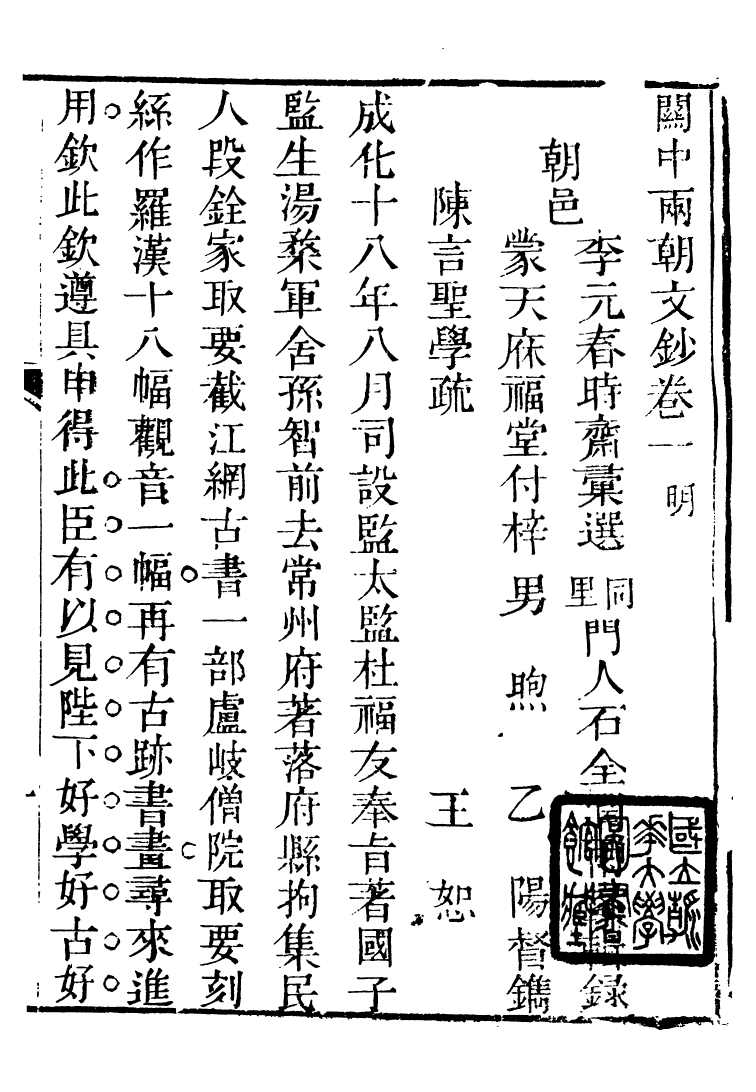 關中兩朝文鈔卷一 明
朝邑
李元春時齋彙選 同里門人石全 錄
蒙天庥福堂付梓 男 煦 乙 陽督鐫
陳言聖學疏 王恕
成化十八年八月司設監太監杜福友奉旨著國子
監生湯粊軍舍孫智前去常州府著落府縣拘集民
人段銓家取要截江網古書一部盧岐僧院取要刻
絲作羅漢十八幅觀音一幅再有古跡書畫尋來進
用欽此欽遵具申得此臣有以見陛下好學好古好
國立北平大學圖書館